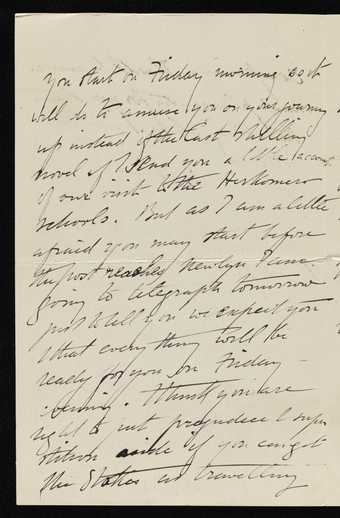 You start on Friday morning so it
will do to amuse you on your journey
up instead of the last shilling
novel if I send you a little account
of our visit to the Herkomer
Schools. But as I am a little
afraid you may start before
the post reaches Newlyn I am
going to telegraph tomorrow
just to tell you we expect you
& that everything will be
ready for you on Friday
evening. I think you are
right to put prejudice & super
stition aside if you can get
the Stokes as travelling